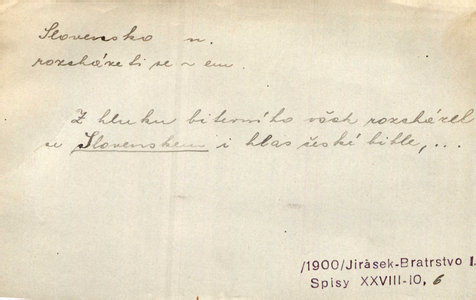 Slovensko n.
rozcházeti se ~ em.
Z hluku bitevního však rozcházel
se Slovenskem i hlas české bible, ...
/1900/Jirásek-Bratrstvo I.
Spisy XXVIII-10, 6